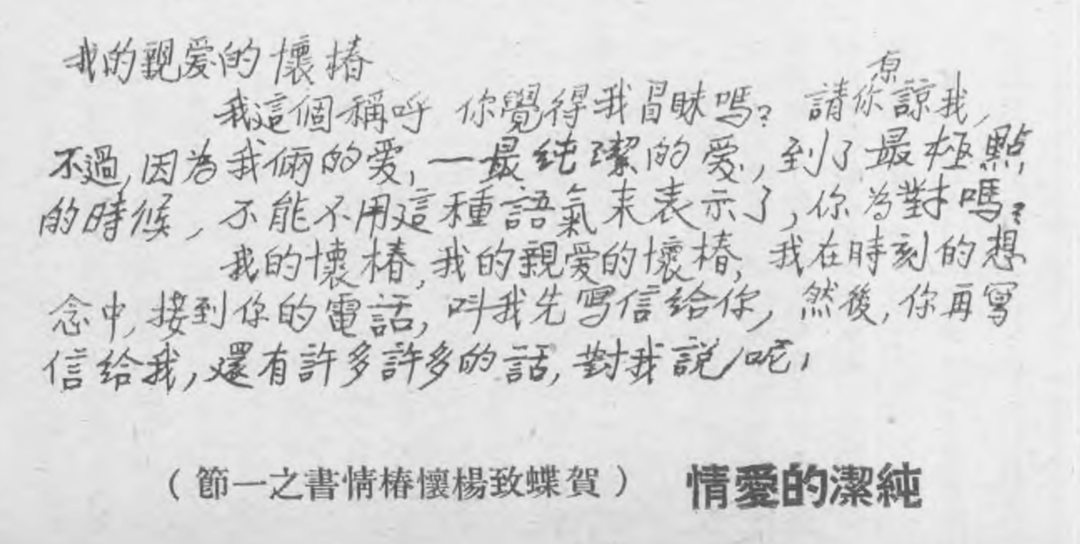 我的親爱的懷椿
我這個稱呼 你覺得我冒昧嗎? 請你原諒我,
不過,因为我倆的爱,一最純潔的爱,到了最極點
的時候,不能不用這種語氣来表示了,你为對嗎?
我的懷椿,我的親爱的懷椿,我在時刻的想
念中,接到你的電話,叫我先寫信給你,然後,你再寫
信給我,還有許多許多的話,對我説呢!
純潔的愛情
(賀蝶致楊懷椿情書之一節)